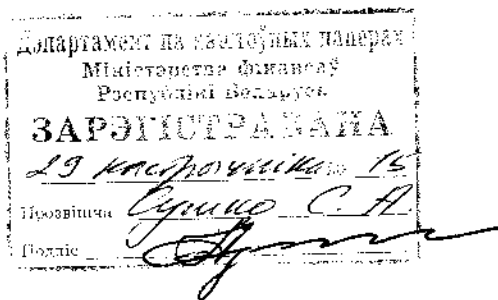 Дэпартамент па каштоўных паперах
Міністэрства фінансаў
Рэспублікі Беларусь
ЗАРЭГІСТРАВАНА
29 кастрычніка 15
Прозвішча Сушко С. А
Подпіс